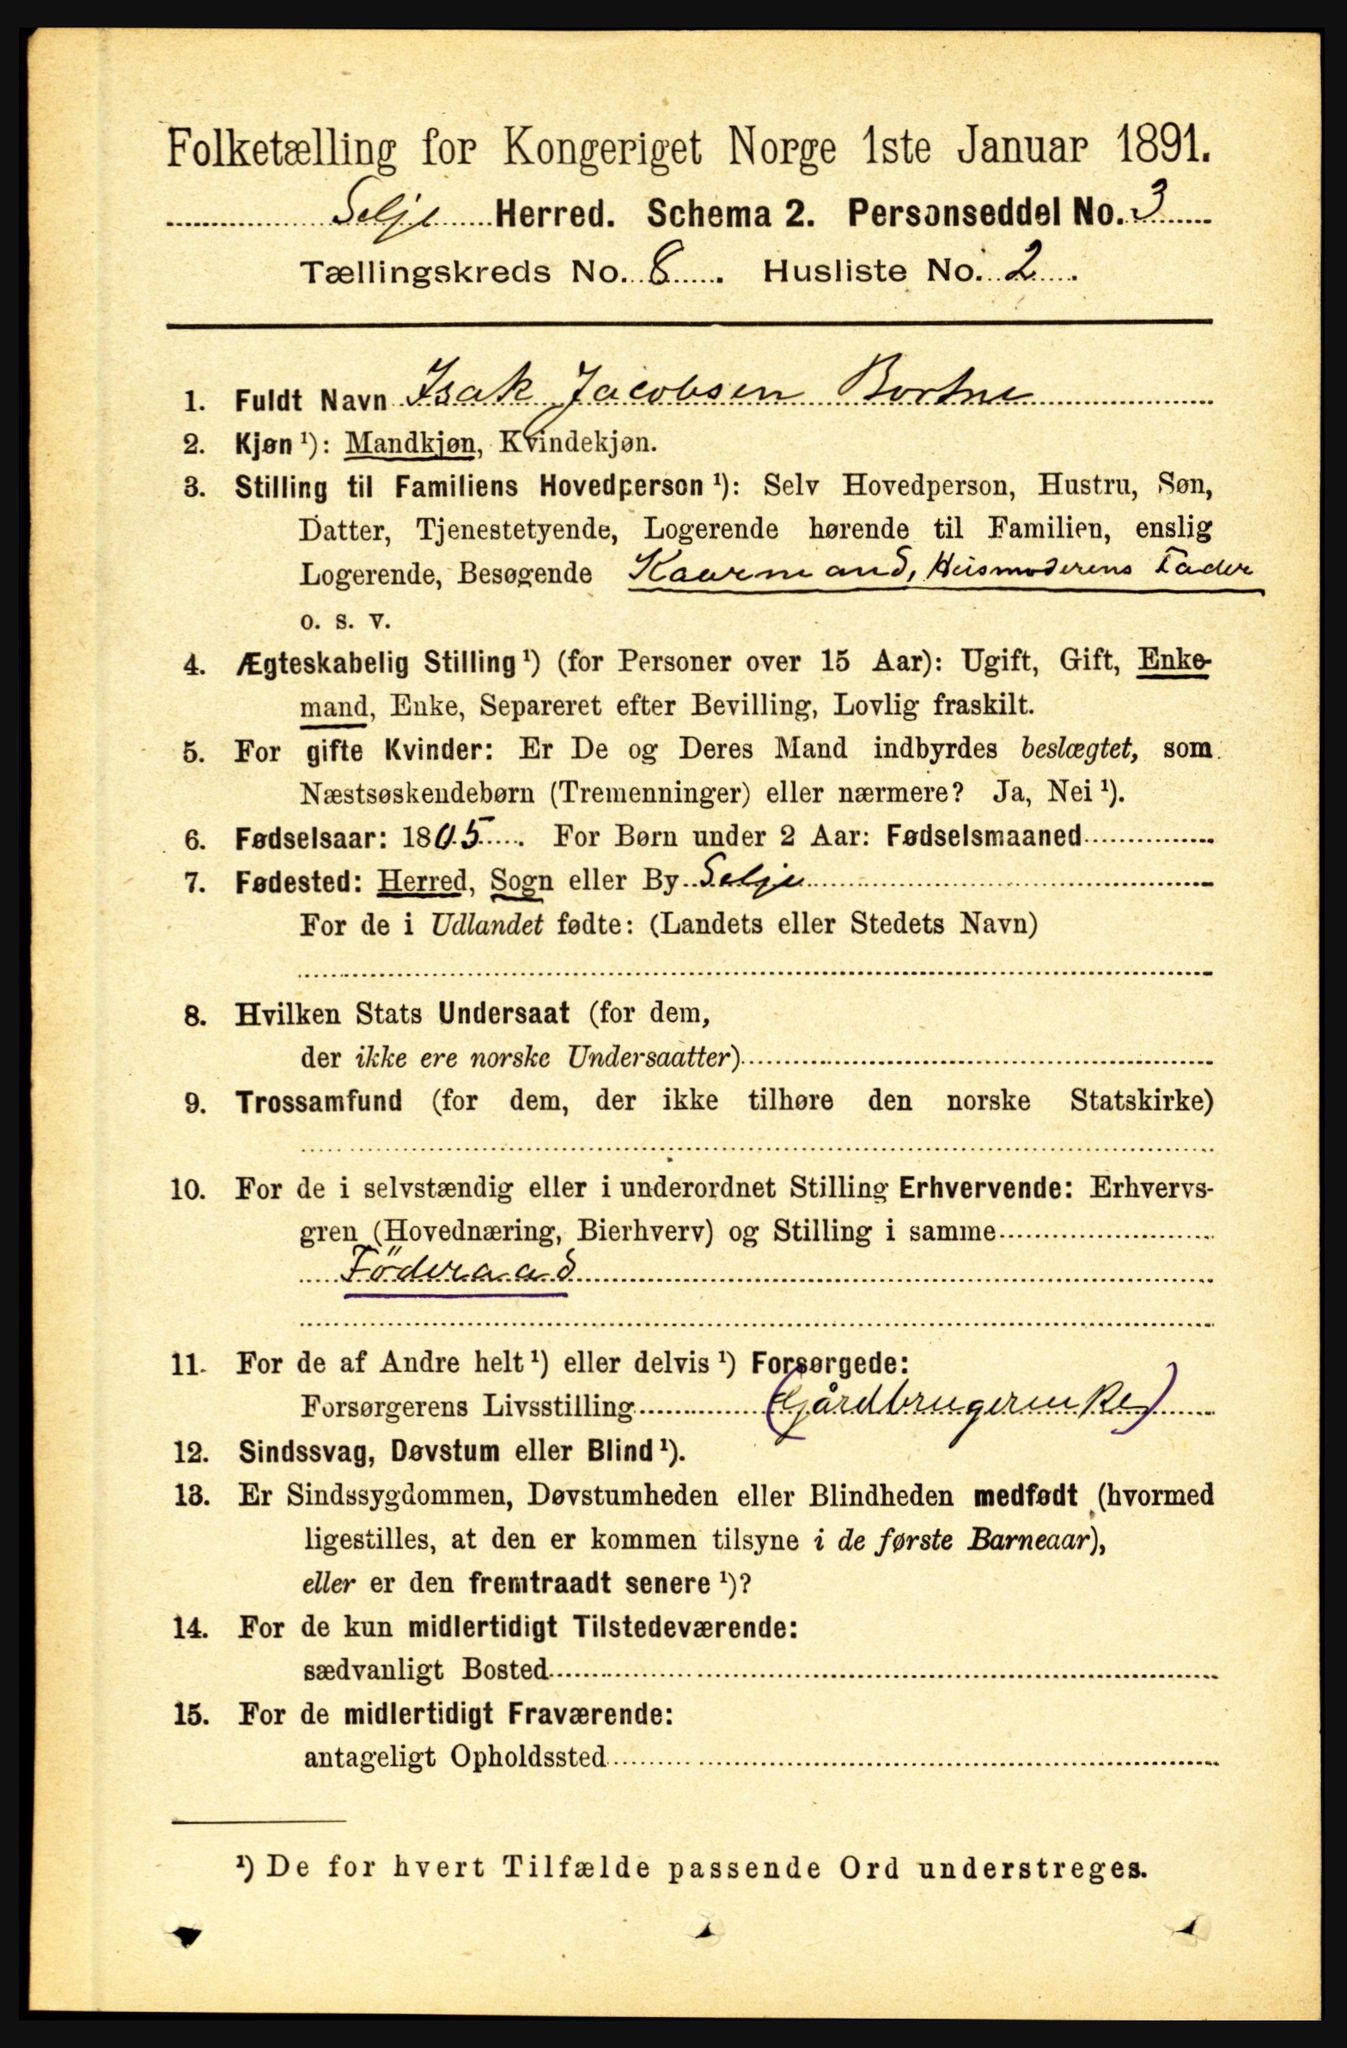 Folketælling for Kongeriget Norge 1ste Januar 1891.
Selje Herred. Schema 2. Personseddel No. 3
Tællingskreds No. 8. Husliste No. 2.
1. Fuldt Navn Isak Jacobsen Bortne
2. Kjøn ¹): Mandkjøn, Kvindekjøn.
3. Stilling til Familiens Hovedperson ¹): Selv Hovedperson, Hustru, Søn,
Datter, Tjenestetyende, Logerende hørende til Familien, enslig
Logerende, Besøgende Kaarmand, Husmoderens Fader
o. s. v.
4. Ægteskabelig Stilling ¹) (for Personer over 15 Aar): Ugift, Gift, Enke-
mand, Enke, Separeret efter Bevilling, Lovlig fraskilt.
5. For gifte Kvinder: Er De og Deres Mand indbyrdes beslægtet, som
Næstsøskendebørn (Tremenninger) eller nærmere? Ja, Nei ¹).
6. Fødselsaar: 1805. For Børn under 2 Aar: Fødselsmaaned
7. Fødested: Herred, Sogn eller By Selje
For de i Udlandet fødte: (Landets eller Stedets Navn)
8. Hvilken Stats Undersaat (for dem,
der ikke ere norske Undersaatter)
9. Trossamfund (for dem, der ikke tilhøre den norske Statskirke)
10. For de i selvstændig eller i underordnet Stilling Erhvervende: Erhvervs-
gren (Hovednæring, Bierhverv) og Stilling i samme
Föderaad
11. For de af Andre helt ¹) eller delvis ¹) Forsørgede:
Forsørgerens Livsstilling (Gårdbrugerenke)
12. Sindssvag, Døvstum eller Blind ¹).
13. Er Sindssygdommen, Døvstumheden eller Blindheden medfødt (hvormed
ligestilles, at den er kommen tilsyne i de første Barneaar),
eller er den fremtraadt senere ¹)?
14. For de kun midlertidigt Tilstedeværende:
sædvanligt Bosted
15. For de midlertidigt Fraværende:
antageligt Opholdssted
¹) De for hvert Tilfælde passende Ord understreges.